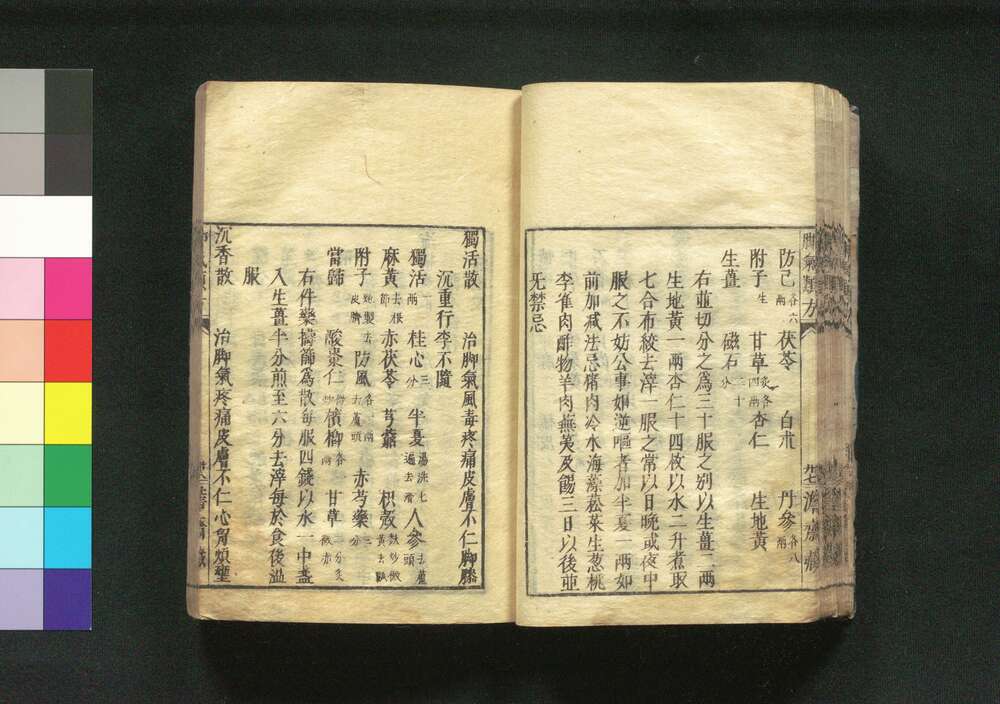 脚氣類方
防己各六兩 茯苓 白朮 丹參各八兩
附子生 甘草炙各四兩 杏仁 生地黃
生薑 磁石三十分
右並切分之爲三十服之別以生薑二兩
生地黃一兩杏仁十四枚以水二升煮取
七合布絞去滓一服之常以日晩或夜中
服之不妨公事如逆嘔者加半夏一兩如
前加減法忌猪肉冷水海藻菘菜生葱桃
李雀肉酢物羊肉蕪荑及餳三日以後並
旡禁忌
獨活散 治脚氣風毒疼痛皮膚不仁脚膝
沉重行李不隨
獨活一兩 桂心三分 半夏湯洗七遍去滑 人參去蘆頭
麻黃去根節 赤茯苓 芎藭 枳殼麩炒微黃去瓤
附子炮製去皮臍 防風各一兩去蘆頭 赤芍藥三分
當歸 酸棗仁微炒 檳榔各一兩 甘草三分炙微赤
右件藥擣篩爲散每服四錢以水一中盞
入生薑半分煎至六分去滓每於食後溫
服
沉香散 治脚氣疼痛皮膚不仁心胷煩壅